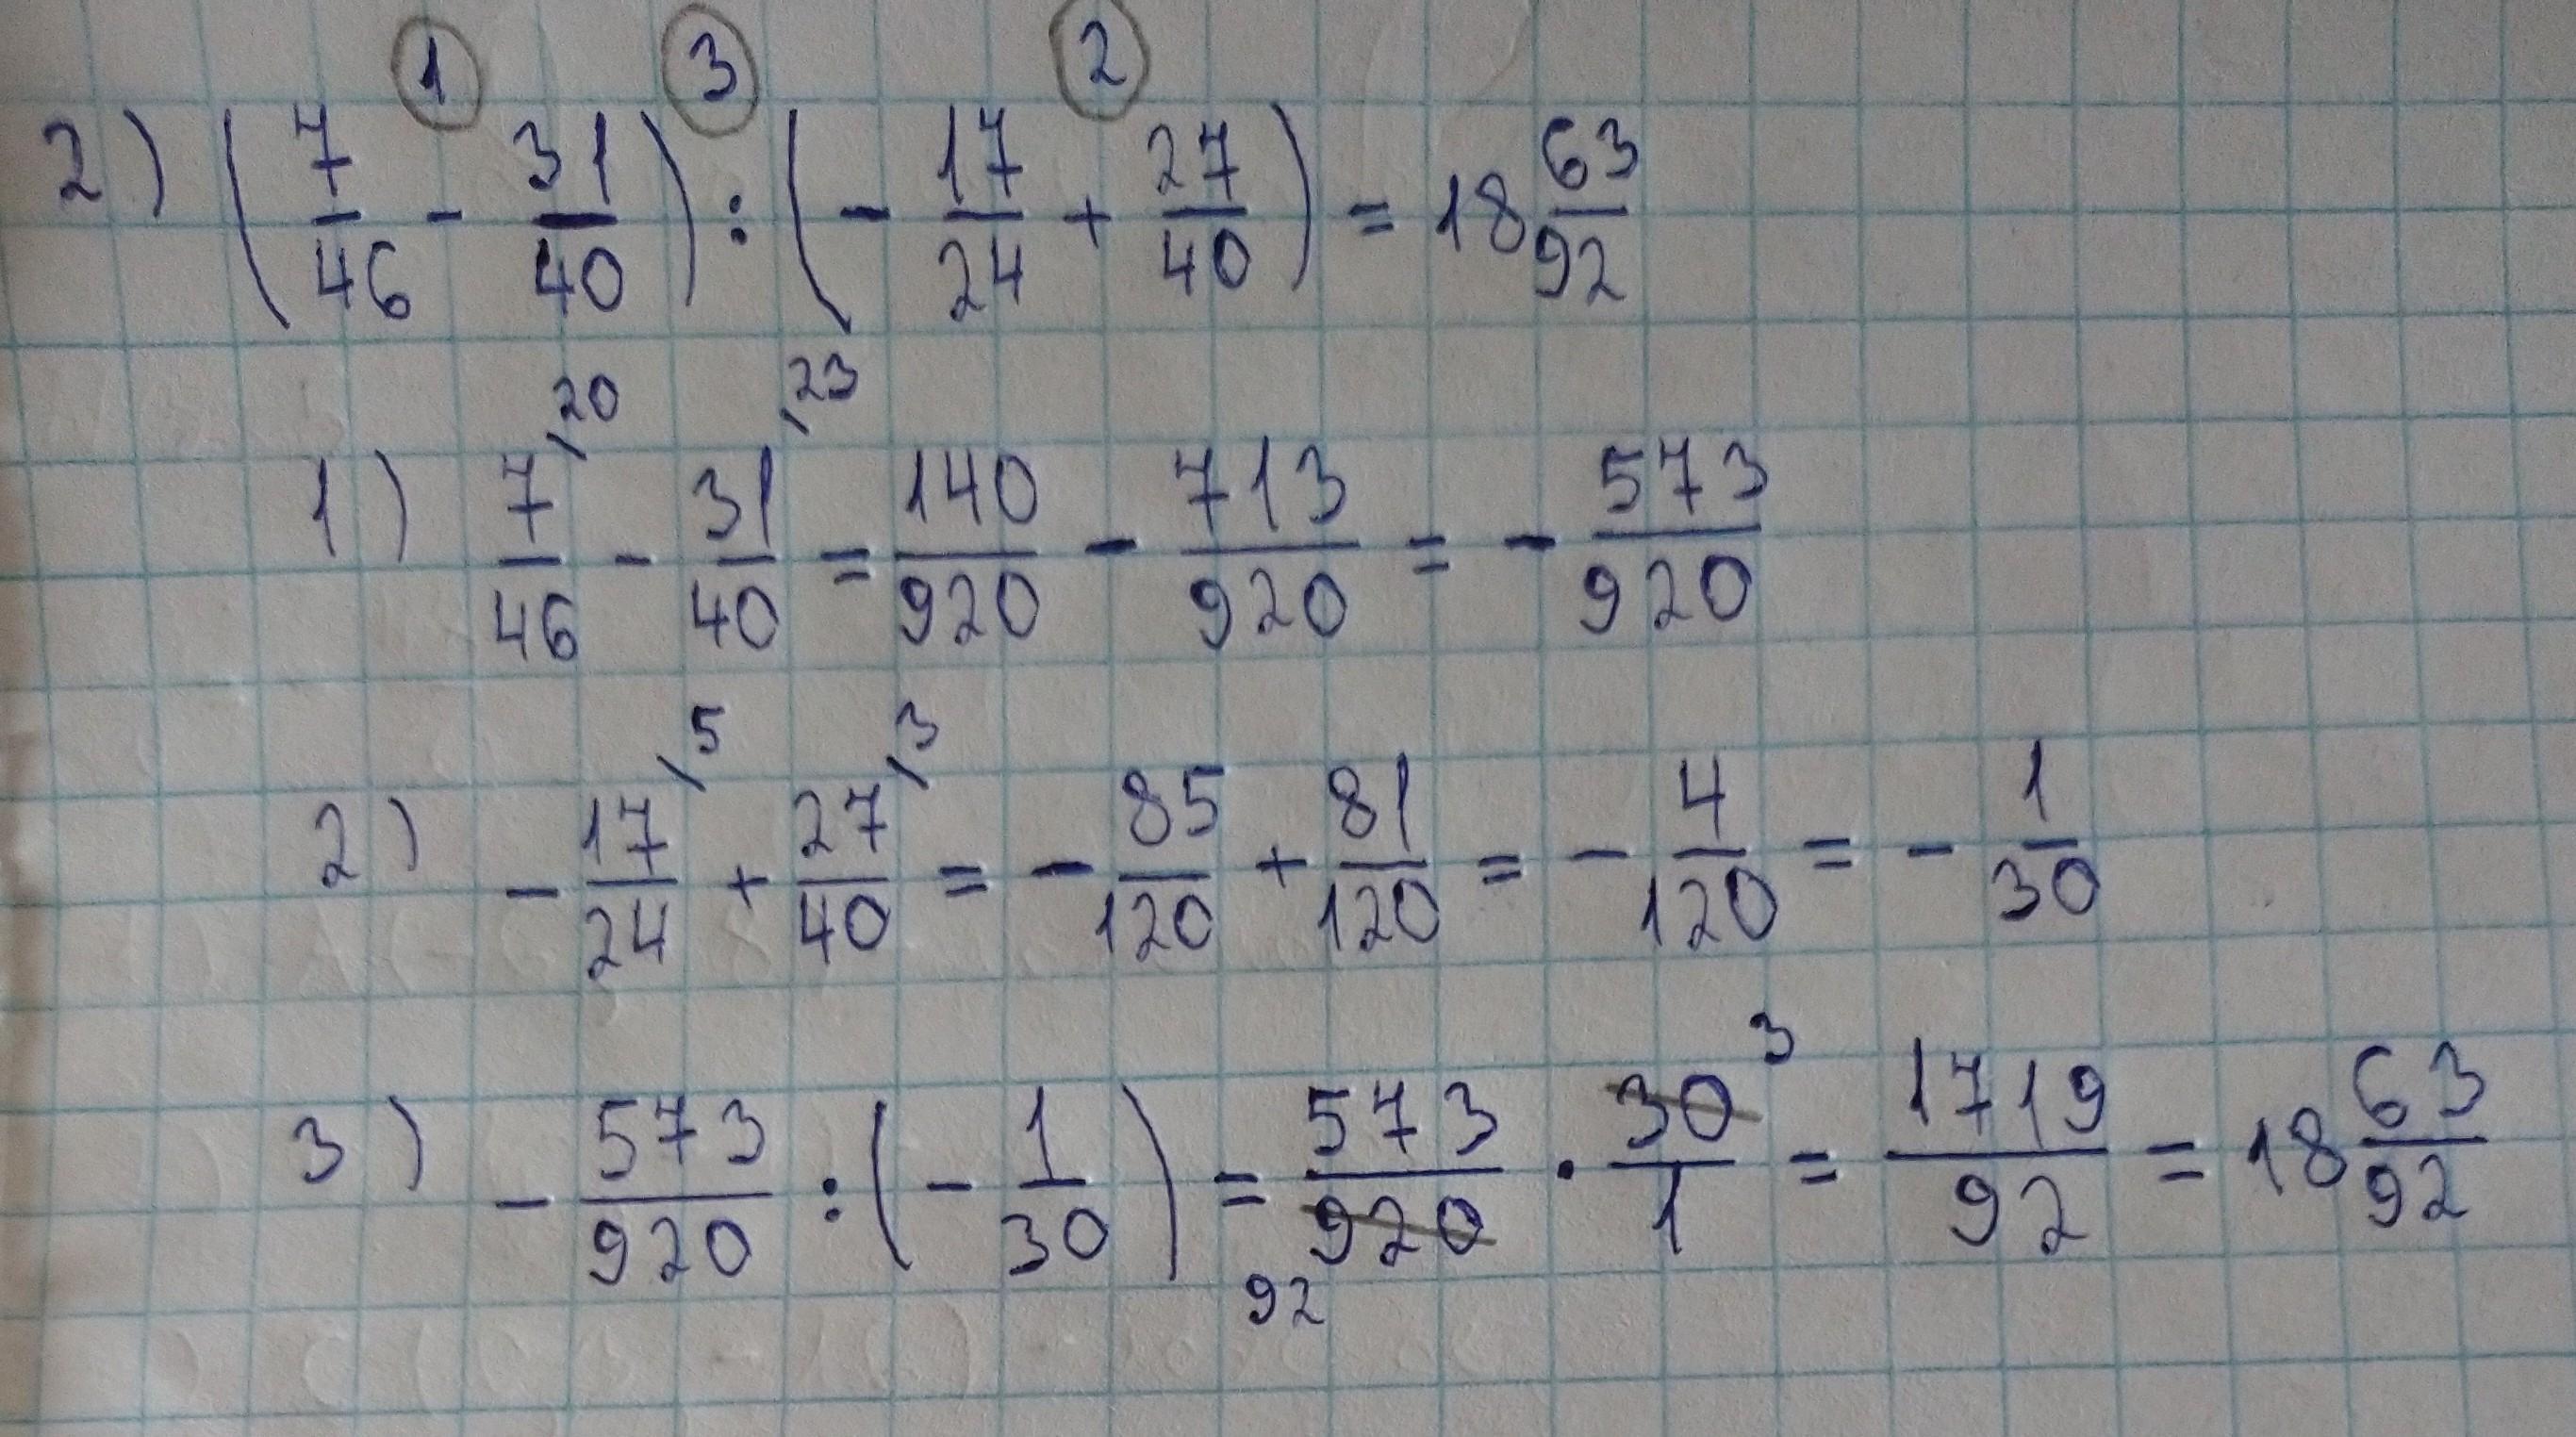 ① ③ ②
2) (7/46 - 31/40) : (- 17/24 + 27/40) = 18 63/92
1) 7/46 \20 - 31/40 \23 = 140/920 - 713/920 = - 573/920
2) - 17/24 \5 + 27/40 \3 = - 85/120 + 81/120 = - 4/120 = - 1/30
3) - 573/920 : (- 1/30) = 573/920 92 · 30/1 3 = 1719/92 = 18 63/92